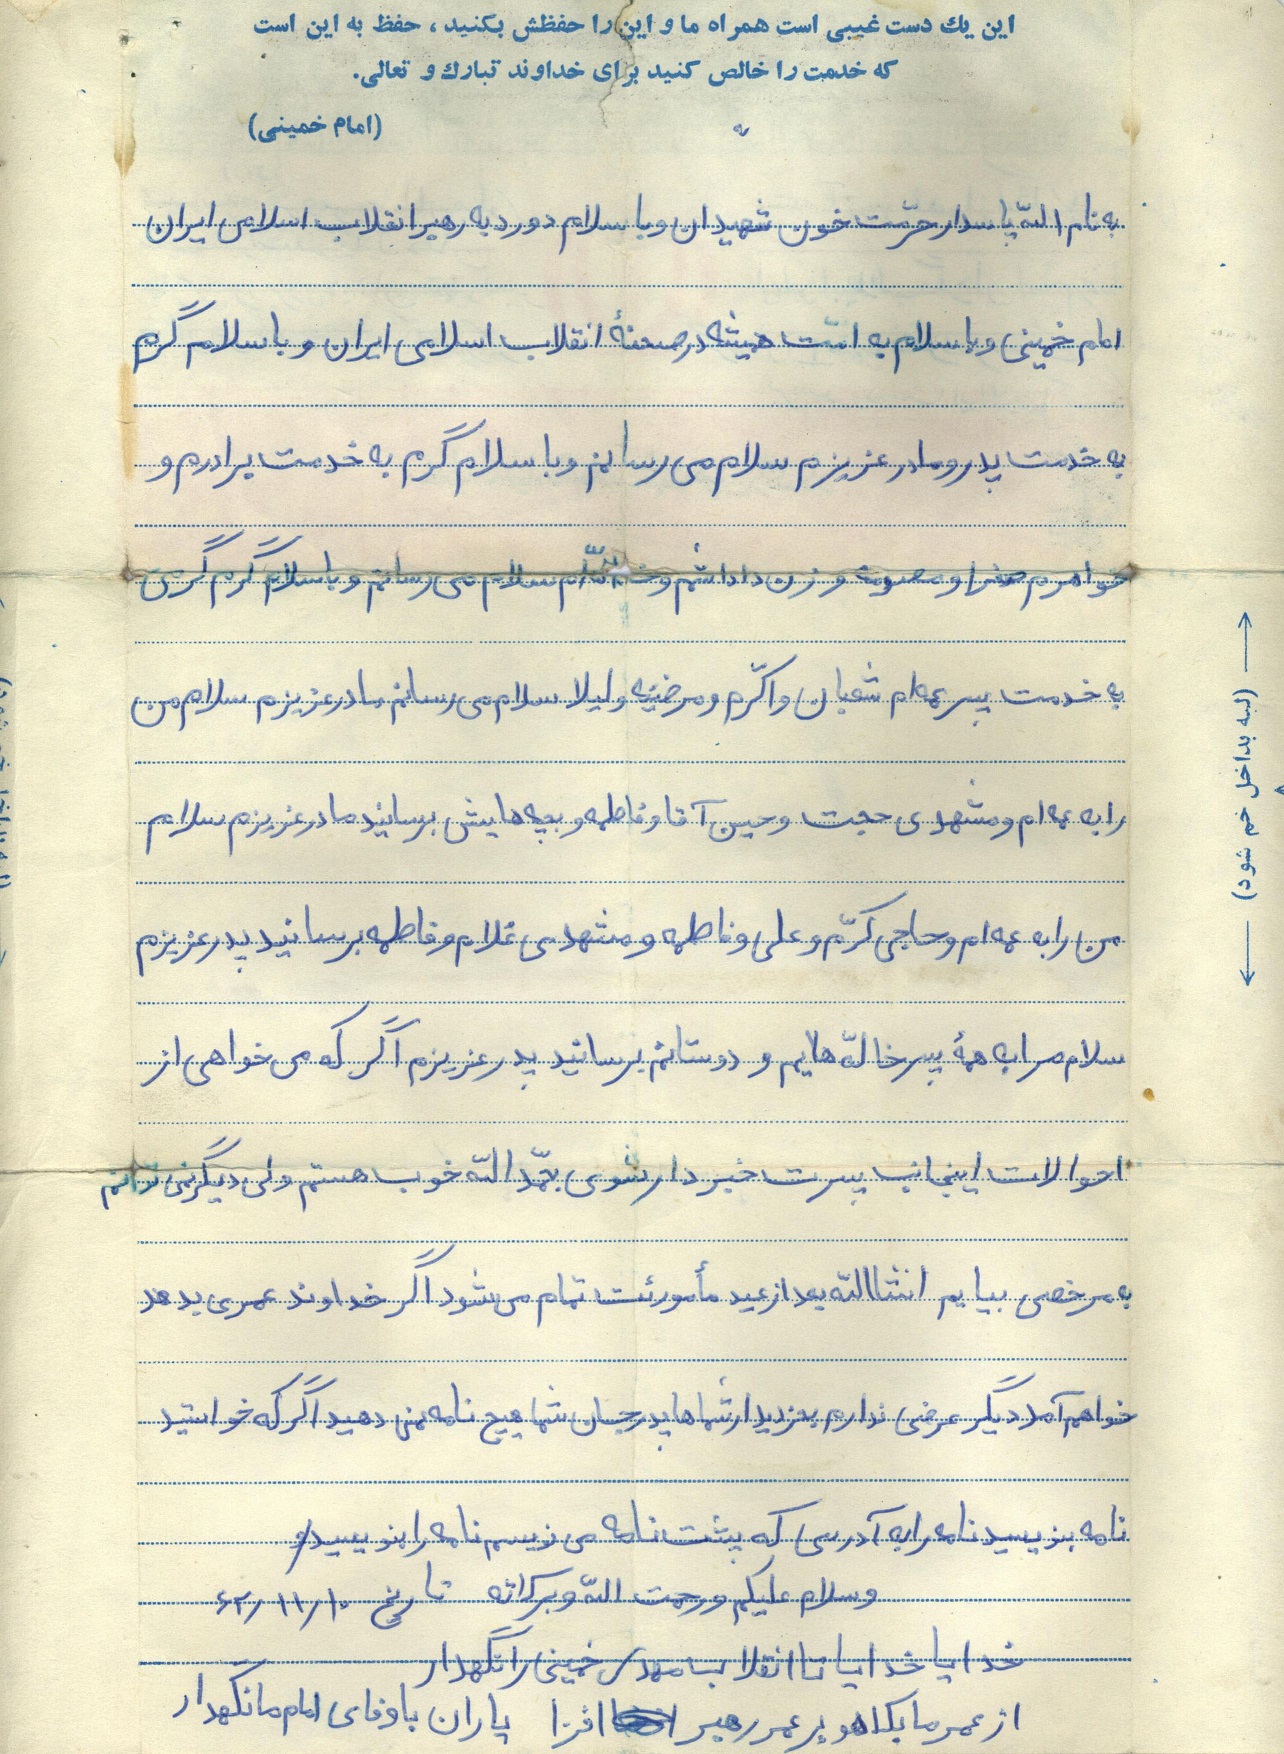 این یك دست غیبی است همراه ما و این را حفظش بكنید ، حفظ به این است
که خدمت را خالص کنید برای خداوند تبارك و تعالی.
(امام خمینی)
به نام اللّه پاسدار حرمّت خون شهیدان و با سلام دورد به رهبر انقلاب اسلامی ایران
امام خمینی و با سلام به امّت همیشه در صحنهٔ انقلاب اسلامی ایران و با سلام گرم
به خدمت پدر و مادر عزیزم سلام می رسانم و با سلام گرم به خدمت برادرم و
خواهرم صغرا و معصومه و زن داداشم و سلام می رسانم و با سلام گرم گرمی
به خدمت پسر عمه ام شعبان و اکرّم و مرضیّه و لیلا سلام می رسانم مادر عزیزم سلام من
را به عمه ام و مشهدی حجت و حسین آقا و فاطمه و بچه هایش برسانید مادر عزیزم سلام
من را به عمه ام و حاجی کرّم و علی و فاطمه و مشهدی غلام و فاطمه برسانید پدر عزیزم
سلام مرا به همهٔ پسر خالهّ هایم و دوستانم برسانید پدر عزیزم اگر که می خواهی از
احوالات اینجانب پسرت خبردار شوی بحمّد اللّه خوب هستم ولی دیگر نمی توانم
به مرخصی بیایم انشااللّه بعد از عید مأمورئت تمام می شود اگر خداوند عمری بدهد
خواهم آمد دیگر عرضی ندارم بجز دیدار شماها پدر جان شما هیچ نامه نمی دهید اگر که خواستید
نامه بنویسید نامه را به آدرسی که پشت نامه می نویسم نامه را بنویسید
وسلام علیکم ورحمت اللّه وبرکاته تاریخ ۶۲/۱۱/۱۰
خدایا خدایا تا انقلاب مهدی خمینی را نگهدار
از عمر ما بکاه و بر عمر رهبر افزا یاران با وفای امام ما نگهدار
(لبه بداخل خم شود)